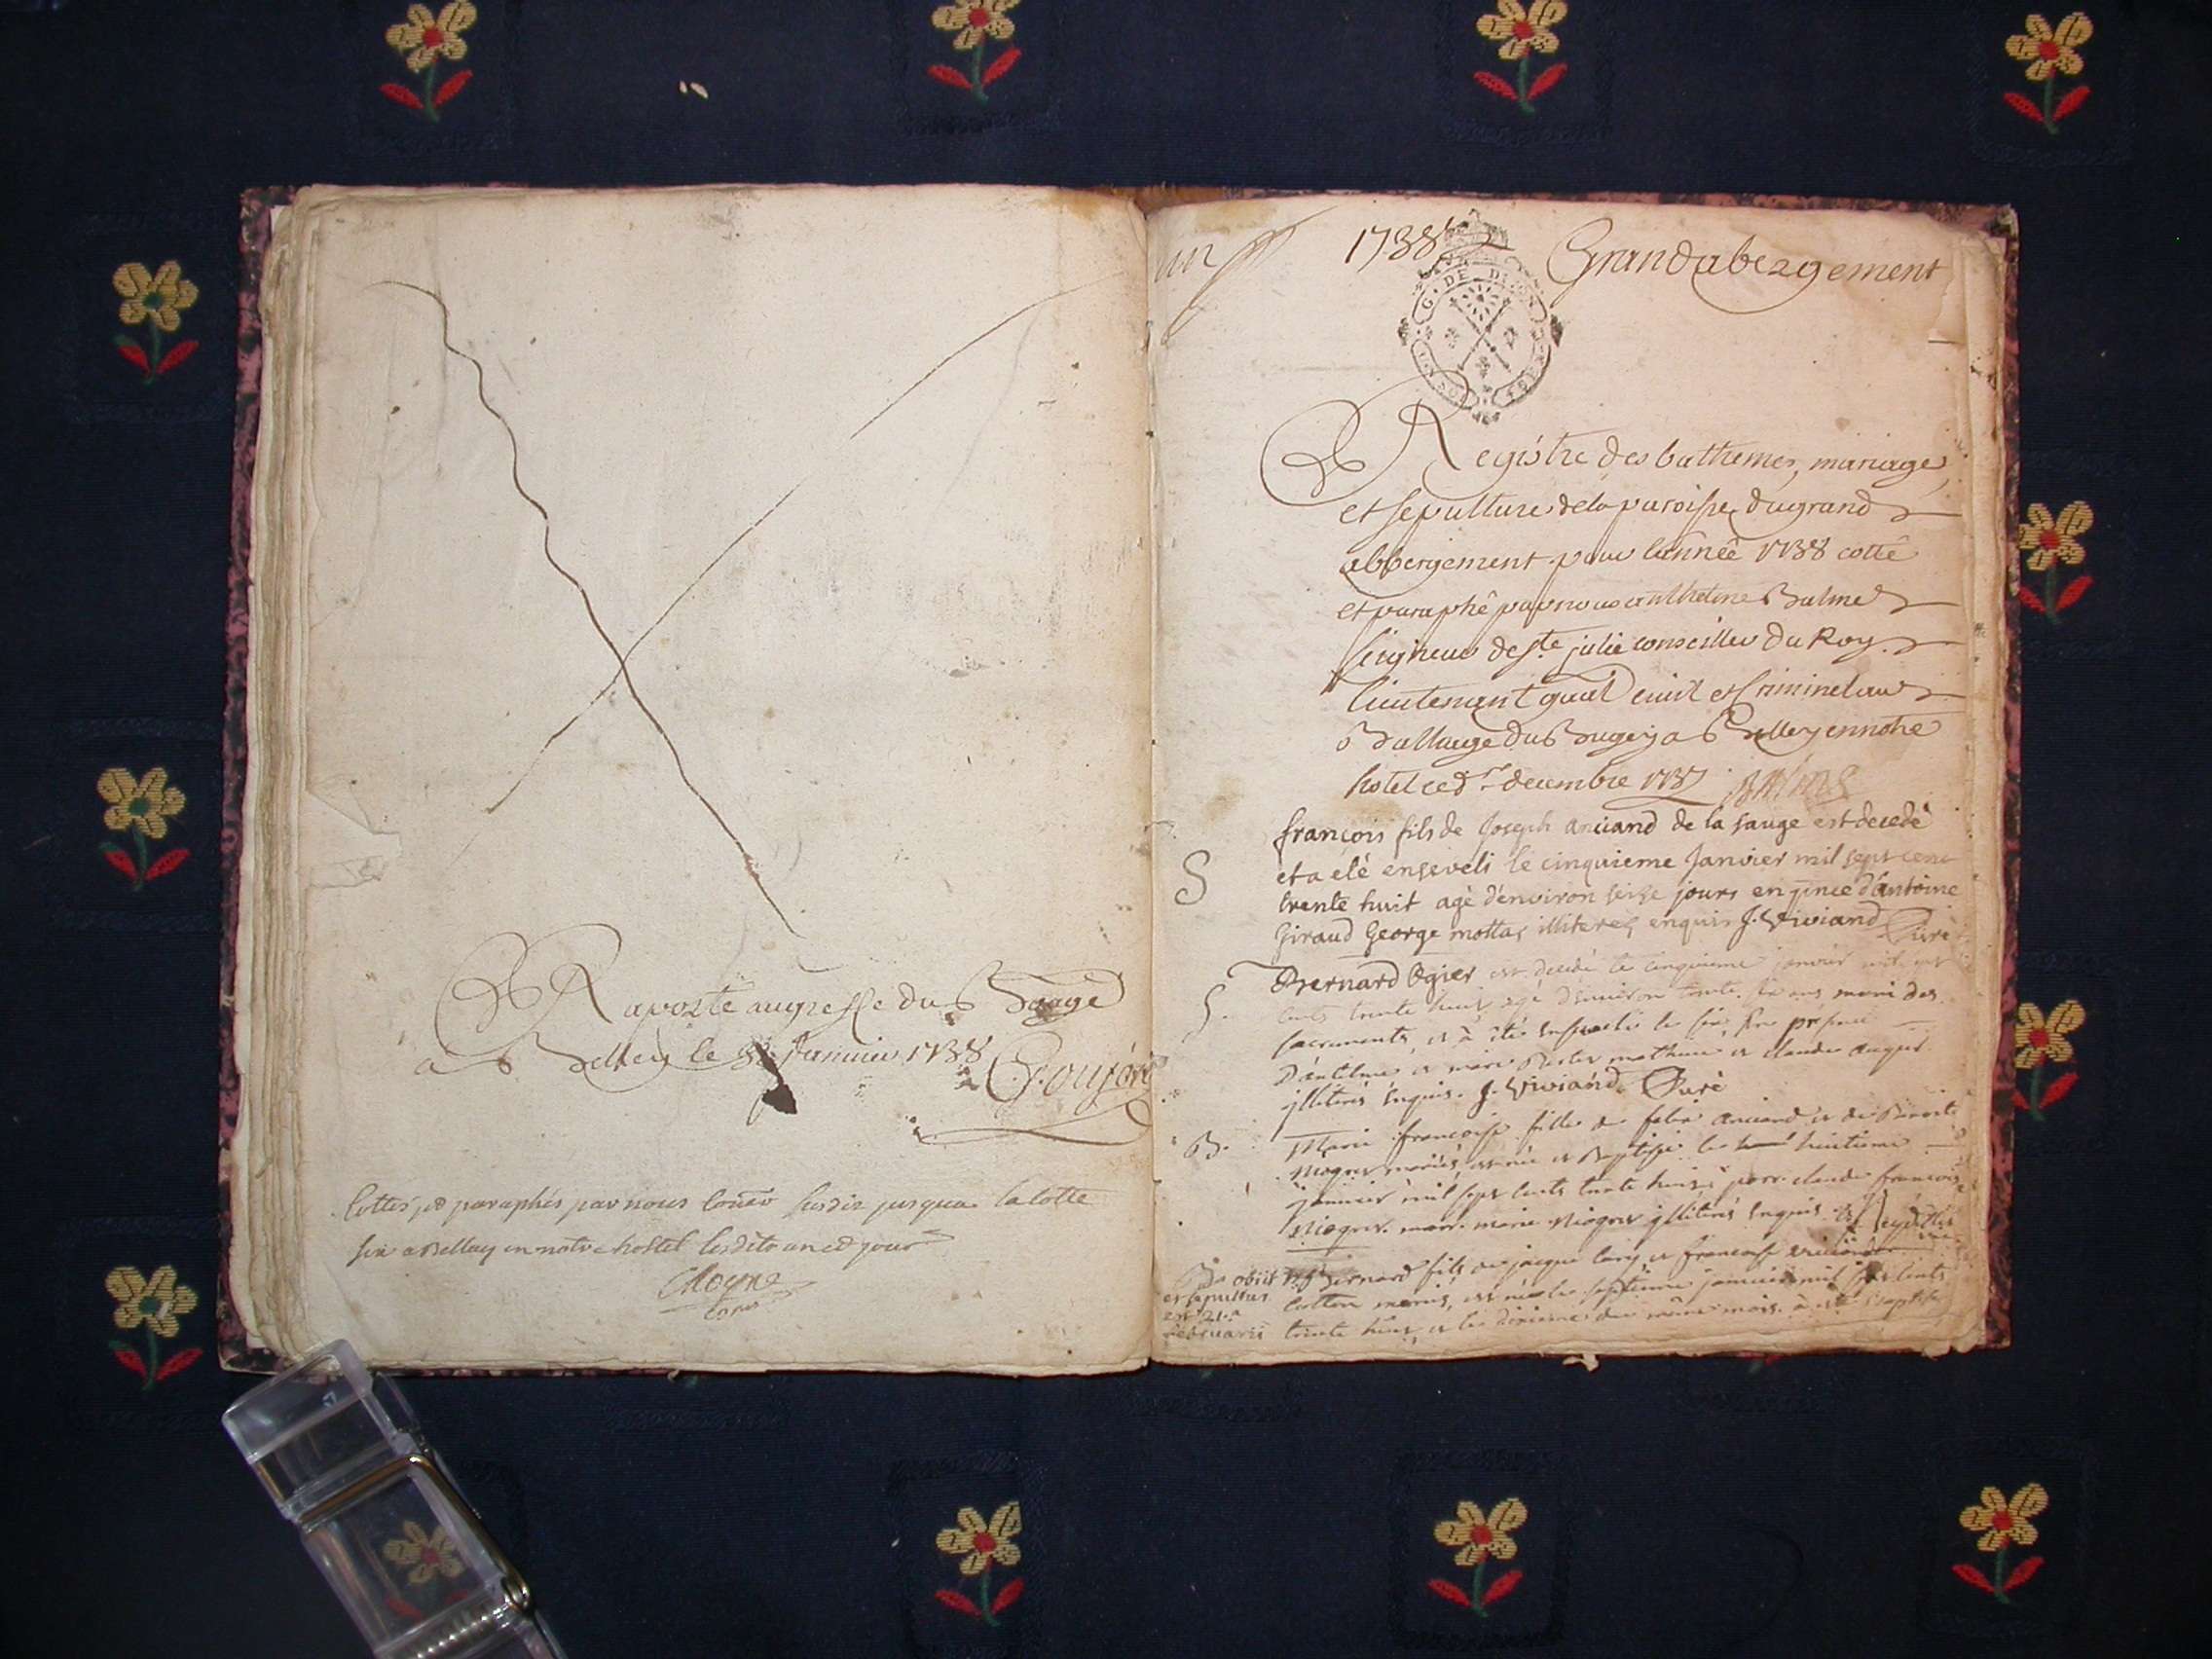 Raporté au greffe du Baage
a Belley le janvier 1738 Goujon
Cottés et paraphés par nous jusqua la cotte
six a Belley en notre hostel lesdits an et jour
un
1738
Grandabergement
G. DE DIJON
Registre des bathemes, mariage
et sepulture de la paroisse du grand
abbergement pour lannêe 1738 cottê
et paraphê par nous anthelme Balme
seigneur de ste julie conseiller du Roy
lieutenant gnal civil et criminel au
Balliage du Bugey a Belley en notre
hotel ce decembre 1737 Balme
S
françois fils de Joseph anciand de la sauge est decedè
et a été enseveli le cinquieme Janvier mil sept cent
trente huit agé d'environ seize jours en pnce d'antoine
Giraud George mottas illiterés enquis J. Viviand Curé
S.
Bernard Ogier est decedé le cinquieme janvier mil sept
cents trente huit agé d'environ trente six ans muni des
sacrements, et à été enseveli le six, en presence
D'antelme et mathieu et claude
illiterés enquis. J. Viviand Curé
B.
Marie françoise fille de anciand et de Benoite
Niogret mariés, est née et Baptisée le huitieme
janvier mil sept cents trente huit: parr. claude françois
Niogret. marr. marie Niogret illiterés enquis.
B. obiit
et sepultus
est 21.a
februarii
Bernard fils de jacque et francoise
mariés, est né le septieme janvier mil sept cents
trente huit, et le dixieme du même mois à été Baptisé